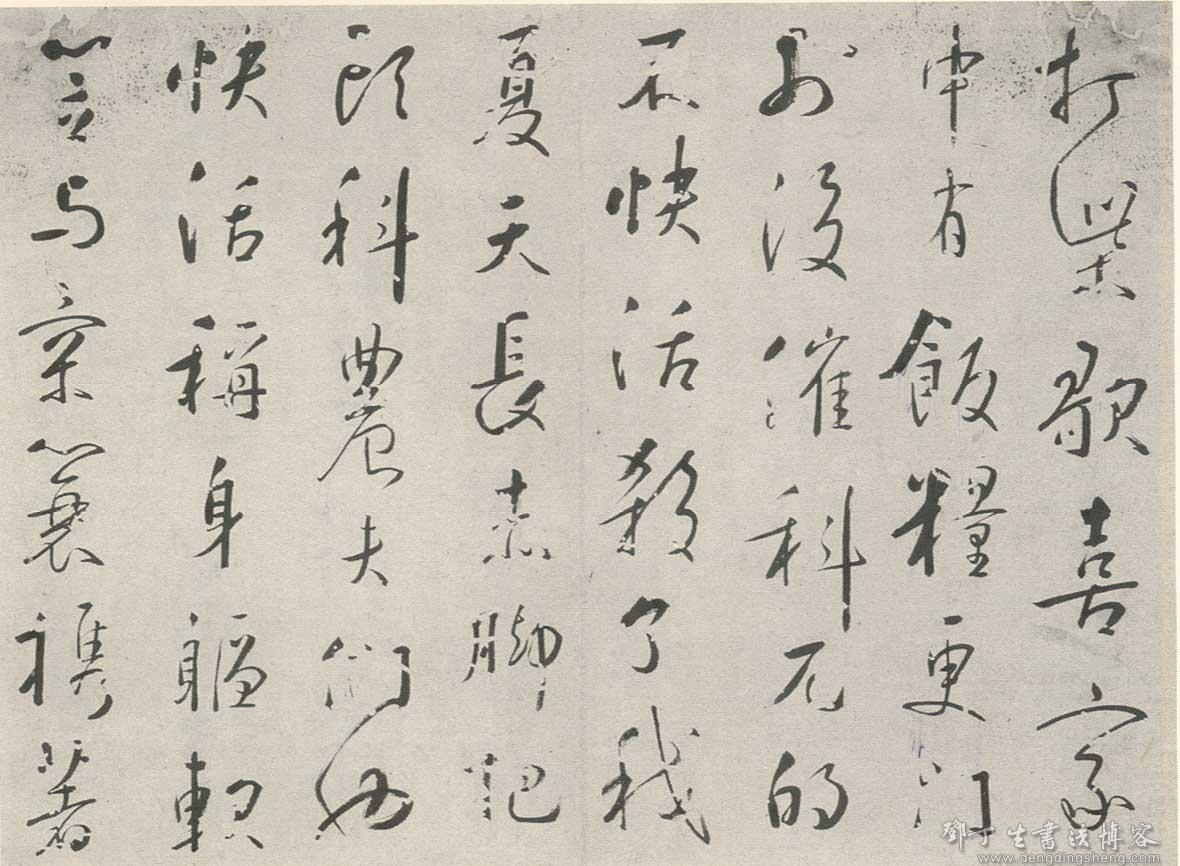 打柴歌喜家
中有飯糧更门
外没催科兀的
不快活殺了我
夏天長赤脚把
頭科農夫們
快活稱身軀軟
笠与蓑著
鄧丁生書法博客
www.dengdingsheng.com